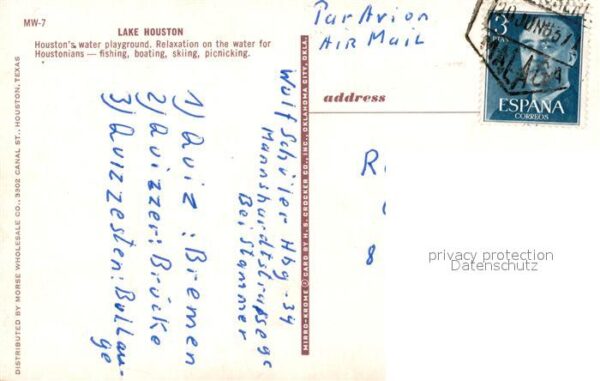 MW-7
LAKE HOUSTON
Houston's water playground. Relaxation on the water for
Houstonians — fishing, boating, skiing, picnicking.
Par Avion
Air Mail
address
3
PTAS
ESPAÑA
CORREOS
MALAGA
DISTRIBUTED BY MORSE WHOLESALE CO., 3302 CANAL ST., HOUSTON, TEXAS
MIRRO-KROME ® CARD BY H. S. CROCKER CO., INC., OKLAHOMA CITY, OKLA.
Wulf Schüler Hbg - 34
Mannshardtstraße 9c
Bei Stammer
1) Quiz : Bremen
2) Quizzer: Brücke
3) Quizzesten: Bullau-
ge
R
8
privacy protection
Datenschutz